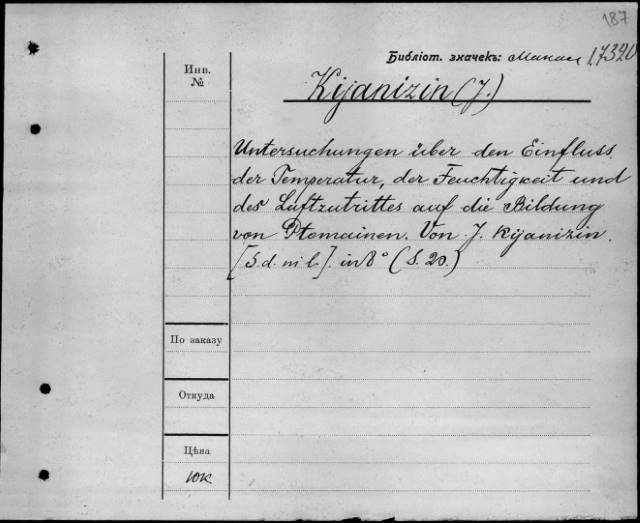 187
Библіот. значекъ: 17320
Инв.
№
Kijanizin (J.)
Untersuchungen über den Einfluss
der Temperatur, der Feuchtigkeit und
des Luftzutrittes auf die Bildung
von Ptomainen. Von J. Kijanizin.
[S. d. ni l]. in 8° (S. 20.)
По заказу
Откуда
Цѣна
10к